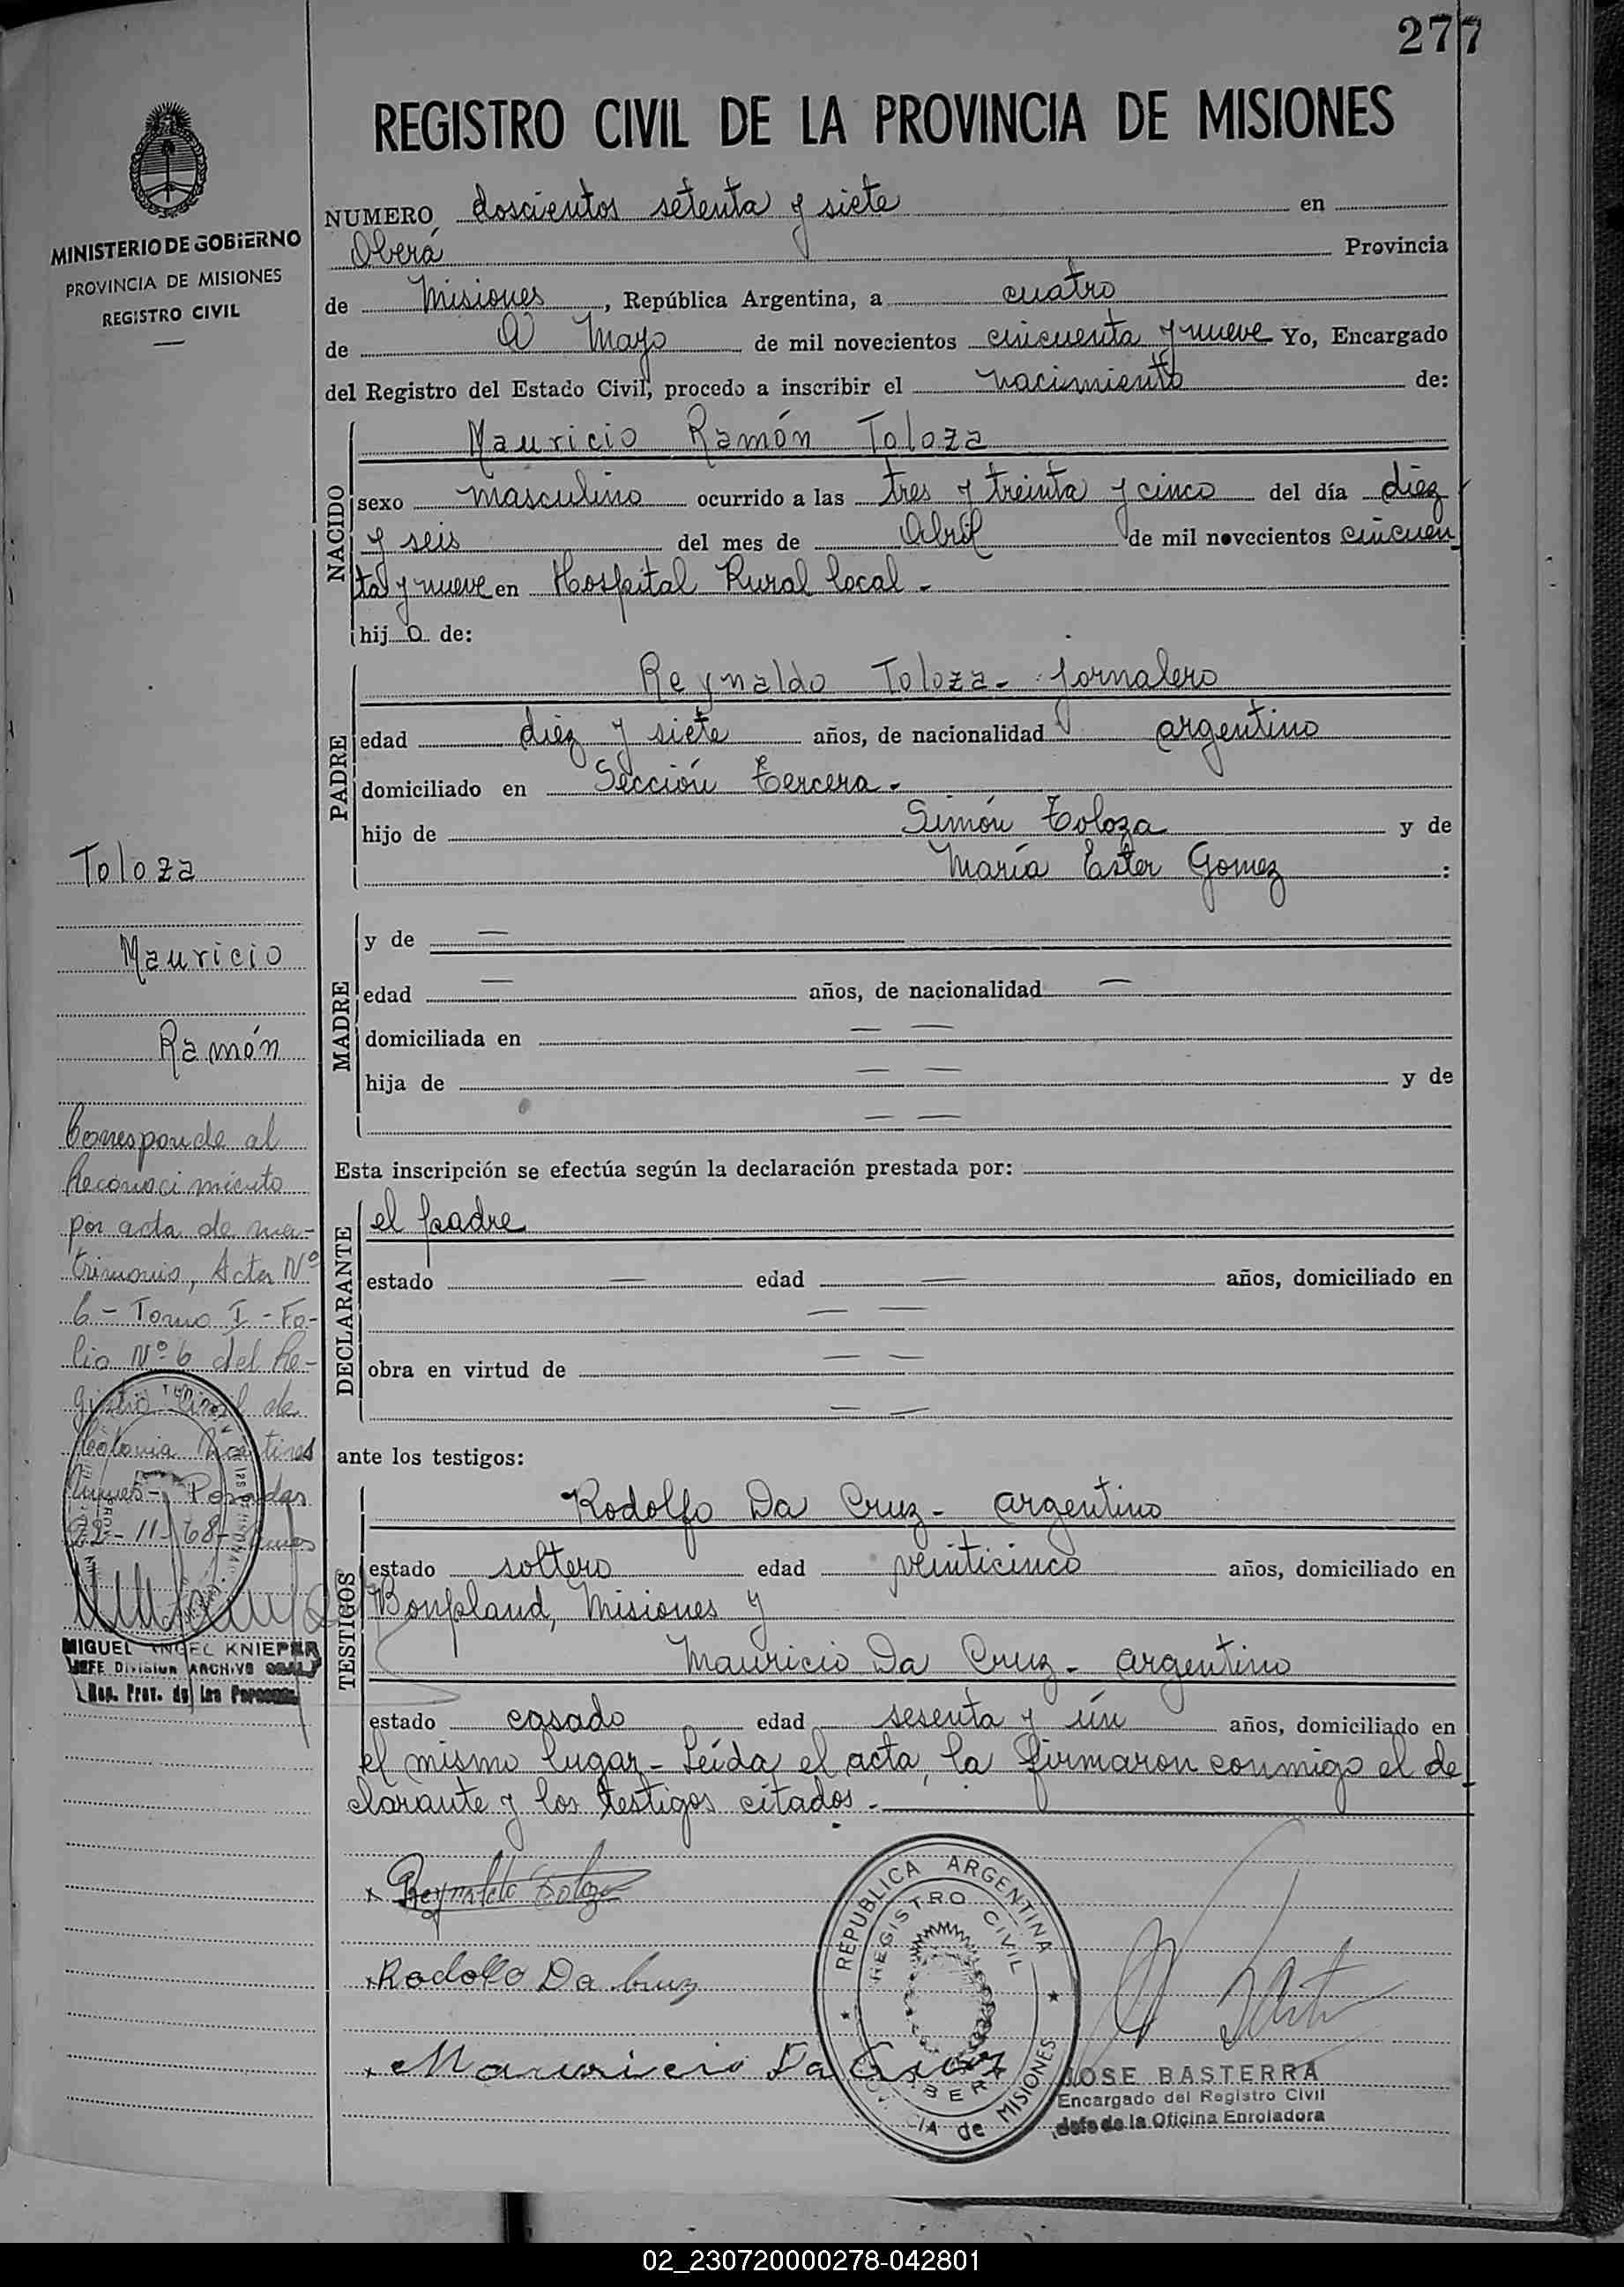 277
REGISTRO CIVIL DE LA PROVINCIA DE MISIONES
MINISTERIO DE GOBIERNO
PROVINCIA DE MISIONES
REGISTRO CIVIL
NUMERO doscientos setenta y siete en
Oberá Provincia
de Misiones, República Argentina, a cuatro
de Mayo de mil novecientos cincuenta y nueve Yo, Encargado
del Registro del Estado Civil, procedo a inscribir el nacimiento de:
NACIDO
Mauricio Ramón Toloza
sexo masculino ocurrido a las tres y treinta y cinco del día diez
y seis del mes de Abril de mil novecientos cincuen
ta y nueve en Hospital Rural local -
hijo de:
PADRE
Reynaldo Toloza - jornalero
edad diez y siete años, de nacionalidad argentino
domiciliado en Sección tercera -
hijo de Simón Toloza y de
María Ester Gomez :
MADRE
y de —
edad — años, de nacionalidad —
domiciliada en — —
hija de — — y de
— —
Esta inscripción se efectúa según la declaración prestada por:
DECLARANTE
el padre
estado — edad — años, domiciliado en
— —
obra en virtud de — —
— —
ante los testigos:
TESTIGOS
Rodolfo Da Cruz - argentino
estado soltero edad veinticinco años, domiciliado en
Bonpland, Misiones y
Mauricio Da Cruz - argentino
estado casado edad sesenta y ún años, domiciliado en
el mismo lugar - Leída el acta, la firmaron conmigo el de
clarante y los testigos citados -
Toloza
Mauricio
Ramón
Corresponde al
Reconocimiento
por acta de ma-
trimonio, Acta Nº
6 - Tomo I - Fo-
lio Nº 6 del Re-
gistro Civil de
Posadas
22-11-68-
MIGUEL ANGEL KNIEPER
JEFE División ARCHIVO GRAL
Reg. Prov. de las Personas
x Reynaldo Toloza
x Rodolfo Da Cruz
x Mauricio Da Cruz
REPUBLICA ARGENTINA
REGISTRO CIVIL
OBERA
PROVINCIA de MISIONES
JOSE BASTERRA
Encargado del Registro Civil
Jefe de la Oficina Enroladora
02_230720000278-042801